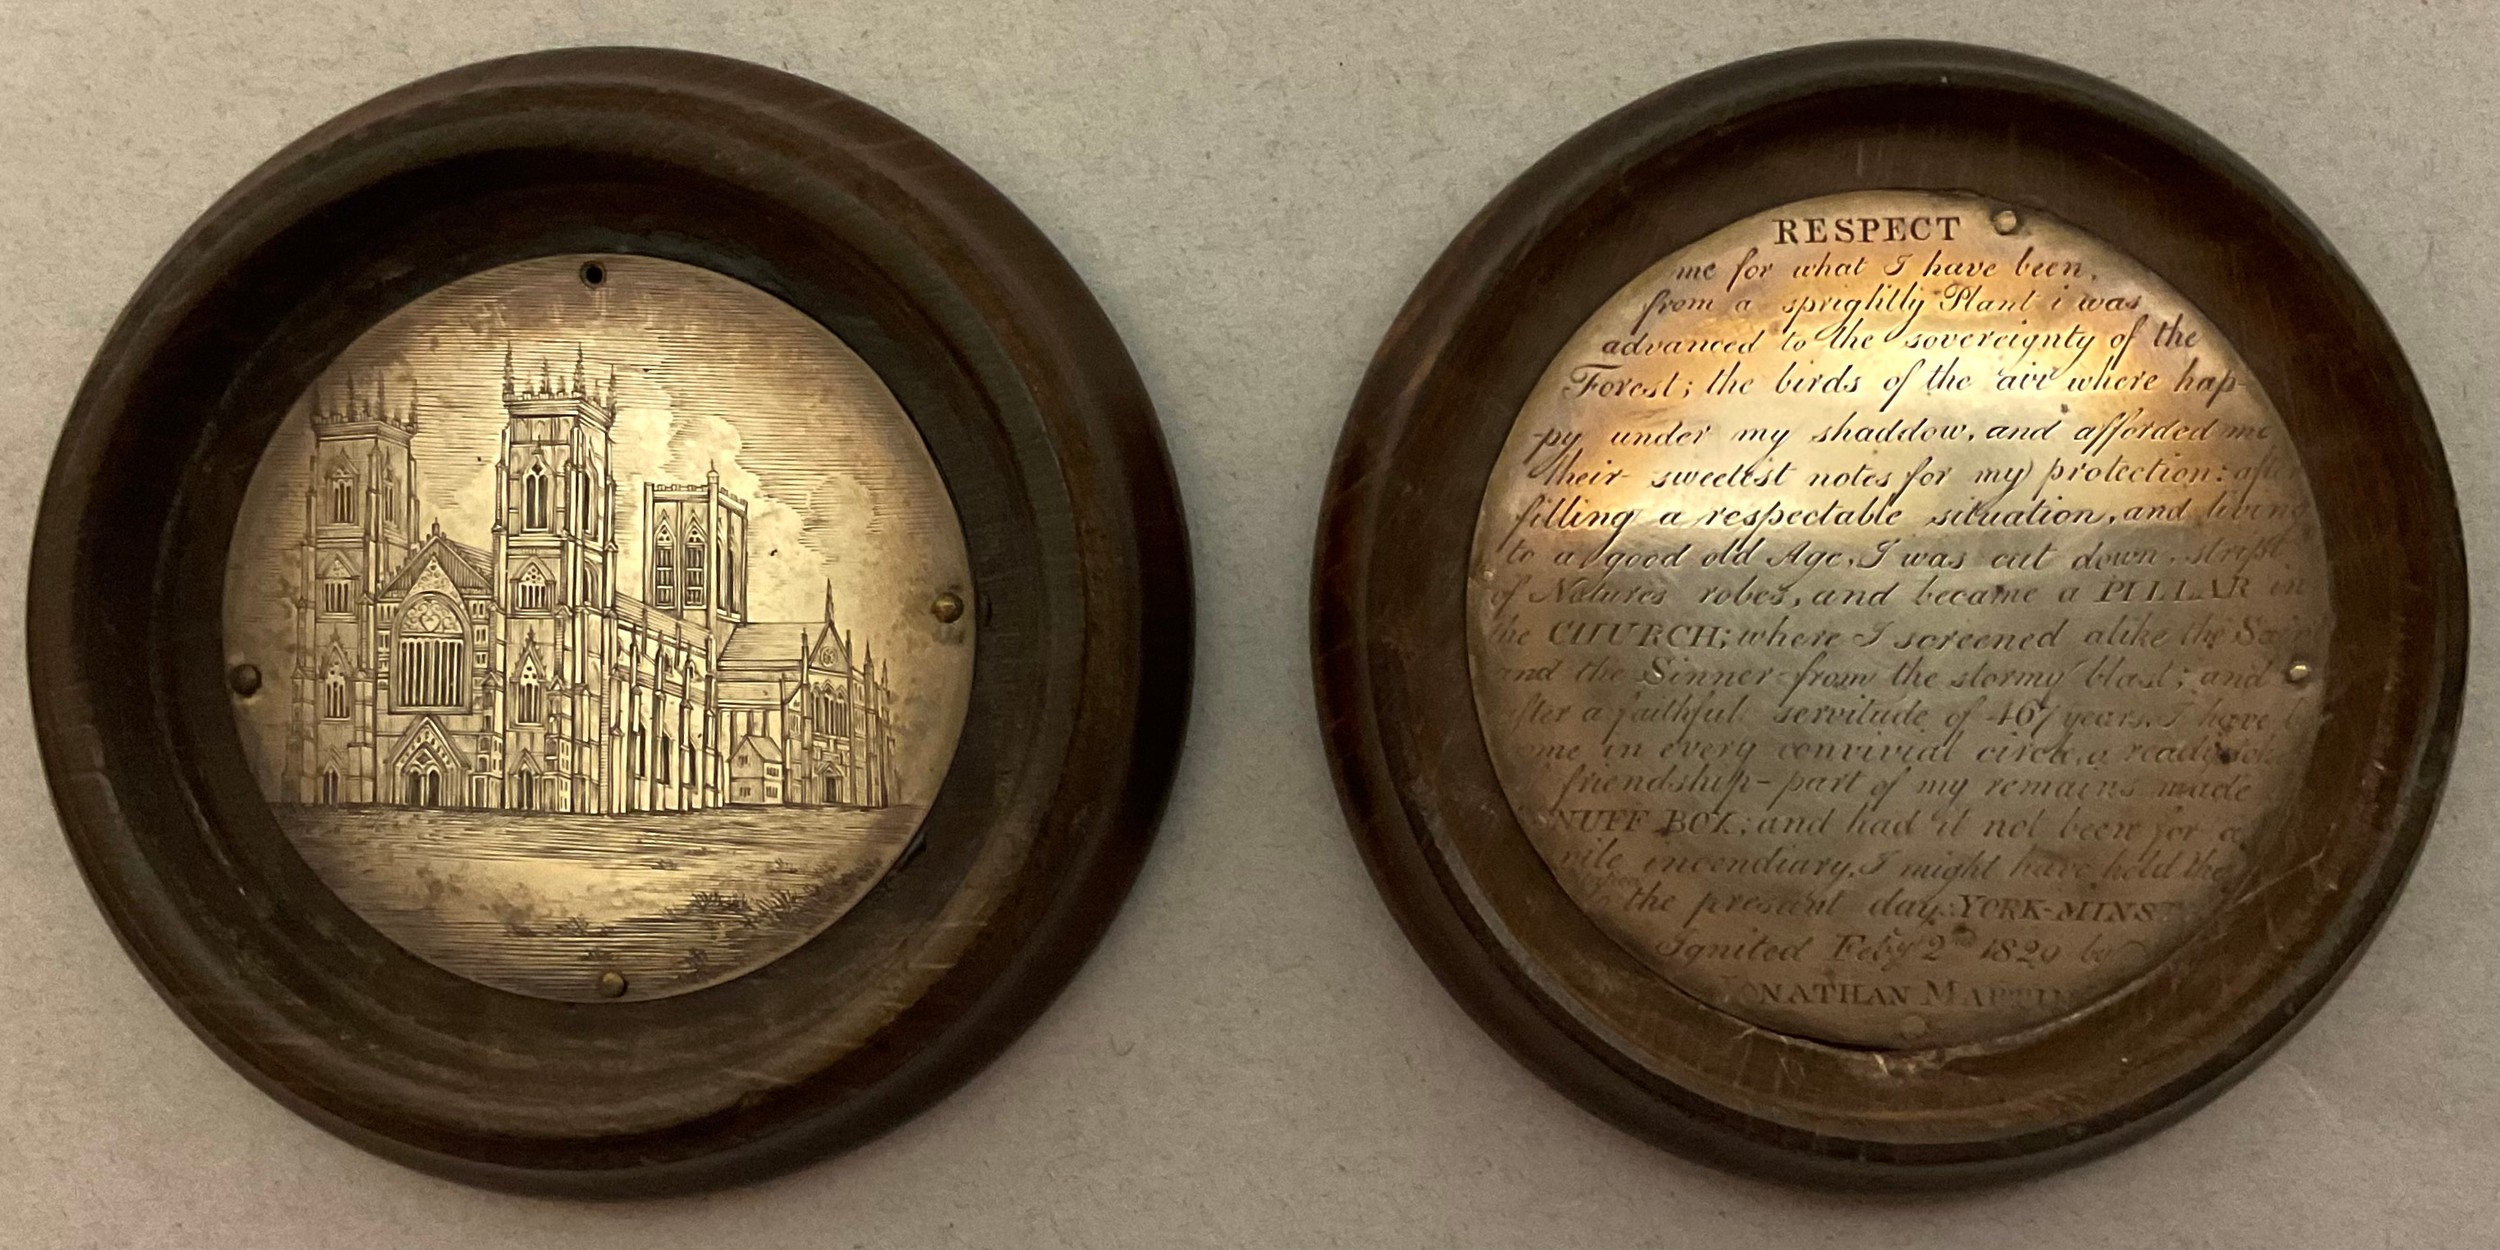 RESPECT
me for what I have been,
from a sprightly Plant i was
advanced to the sovereignty of the
Forest; the birds of the air where hap-
py under my shaddow, and afforded me
their sweetest notes for my protection:
filling a respectable situation, and living
to a good old Age, I was cut down, stript
of Natures robes, and became a PILLAR in
the CHURCH; where I screened alike the
and the Sinner from the stormy blast; and
after a faithful servitude of 467 years, I have
me in every convivial circle, a ready
friendship - part of my remains made
NUFF BOX; and had it not been for a
vile incendiary, I might have held the
the present day. YORK-MINS
Ignited Feby 2nd 1829 by
JONATHAN MARTIN